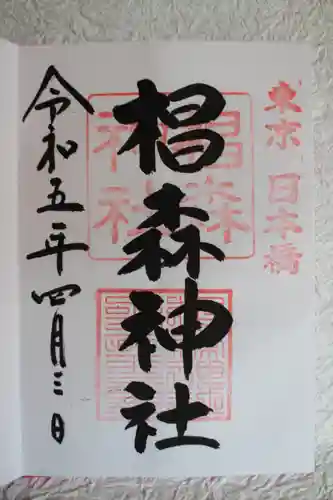 東京 日本橋
椙森神社
椙森神社
令和五年四月三日